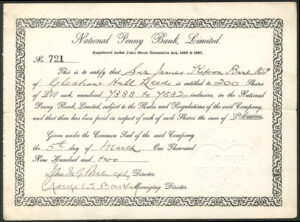 National Penny Bank, Limited.
Registered under Joint Stock Companies Act, 1862 & 1867.
No. 721
This is to certify that Sir James
of Hall Leeds is entitled to 200 Shares
of £10 each, numbered 7333 to 7532 inclusive, in the National
Penny Bank Limited, subject to the Rules and Regulations of the said Company,
and that there has been paid in respect of each of such Shares the sum of
Given under the Common Seal of the said Company
the 5th day of March One Thousand
Nine Hundred and two
Director.
Managing Director.